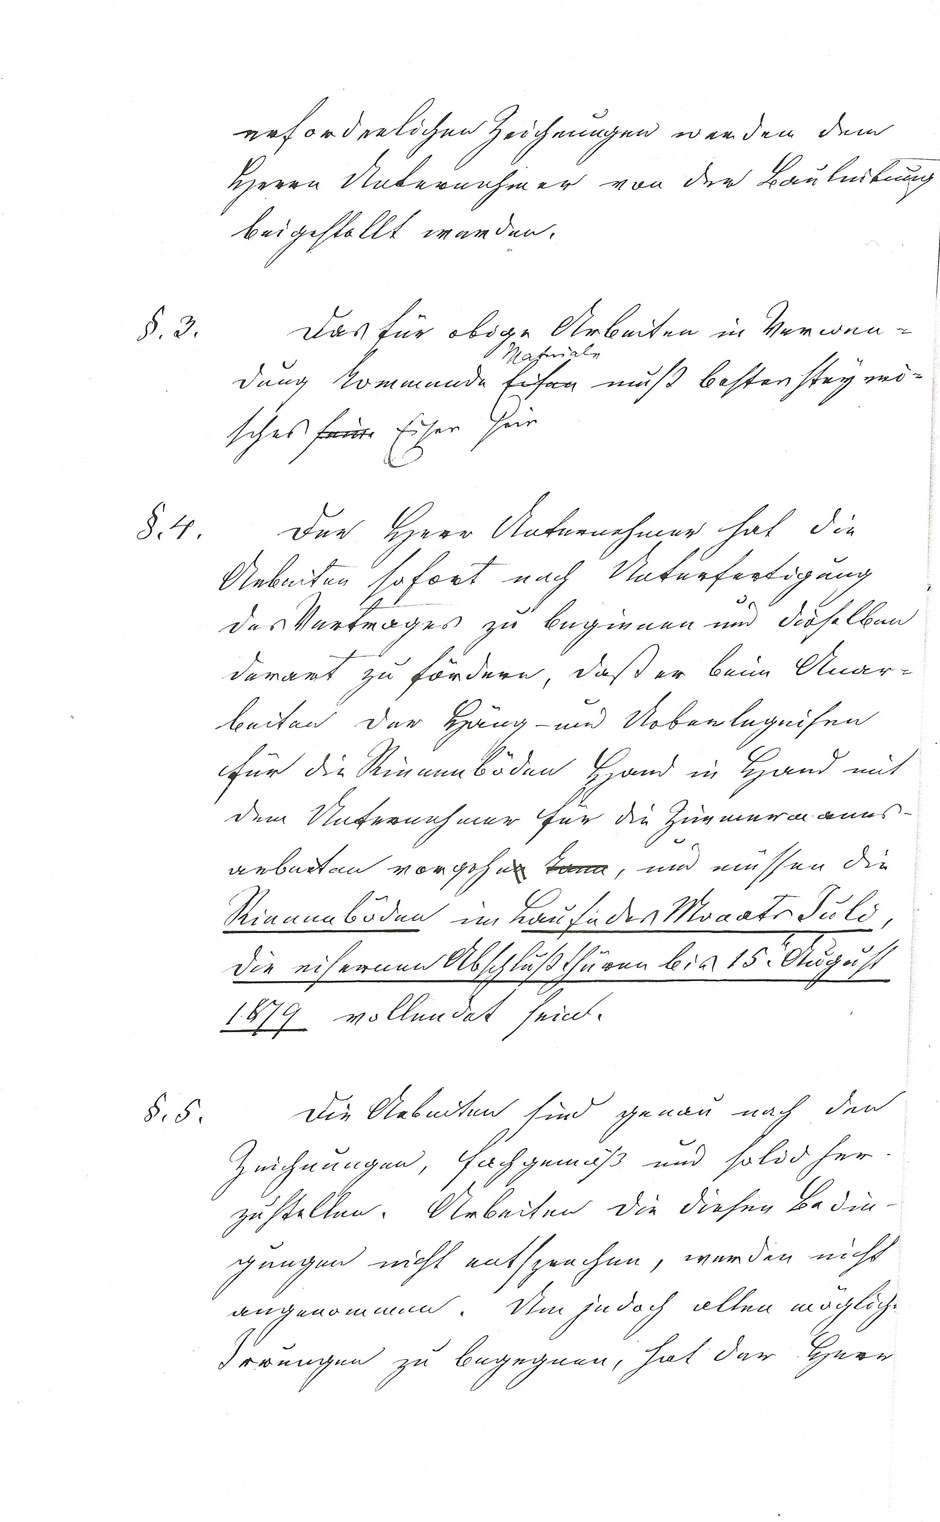 erforderlichen Zeichnungen werden dem
Herrn Unternehmer von der Bauleitung
beigestellt werden.
§. 3. Das für obige Arbeiten in Verwen=
Materiale
dung kommende Eisen muß bestes steyri=
sches sein. Eisen sein
§. 4. Der Herr Unternehmer hat die
Arbeiten sofort nach Unterfertigung
des Vertrages zu beginnen und dieselben
derart zu fördern, daß er beim Anar=
beiten der Häng- und Ueberlegeisen
für die Rinnenböden Hand in Hand mit
dem Unternehmer für die Zimmermanns-
arbeiten vorgehe kann, und müssen die
Rinnenböden im Laufe des Monats Juli,
die eisernen Abschlußthüren bis 15. August
1879 vollendet sein.
§. 5. Die Arbeiten sind genau nach den
Zeichnungen, fachgemäß und solid her-
zustellen. Arbeiten die diesen Bedin-
gungen nicht entsprechen, werden nicht
angenommen. Um jedoch allen möglich
Irrungen zu begegnen, hat der Herr